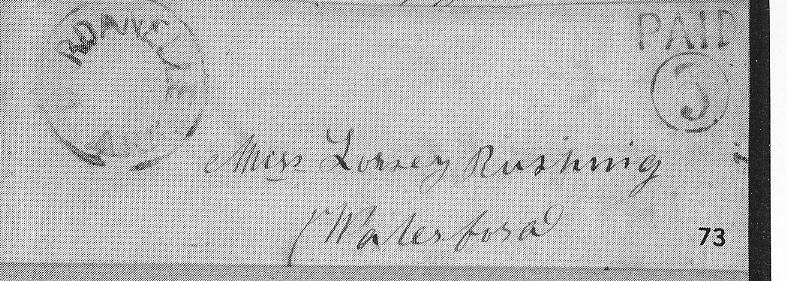 PAID
3
Miss Lorsey Rushing
Waterford
73